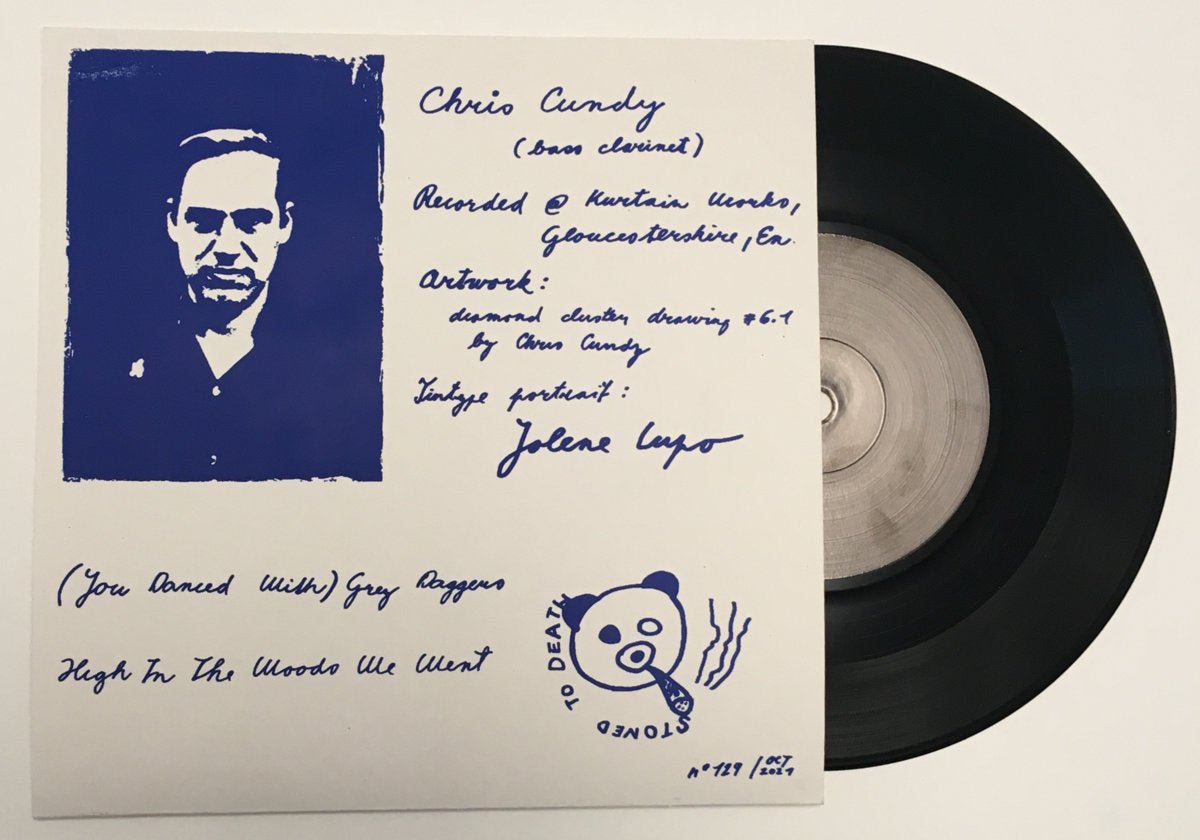 Chris Cundy
(bass clarinet)
Recorded @ Kurtain Works,
Gloucestershire, En.
Artwork:
diamond cluster drawing #6.1
by Chris Cundy
Tintype portrait:
Jolene Lupo
(You Danced With) Grey Daggers
High In The Woods We Went
STONED TO DEATH
Nº 129 / OCT 2021